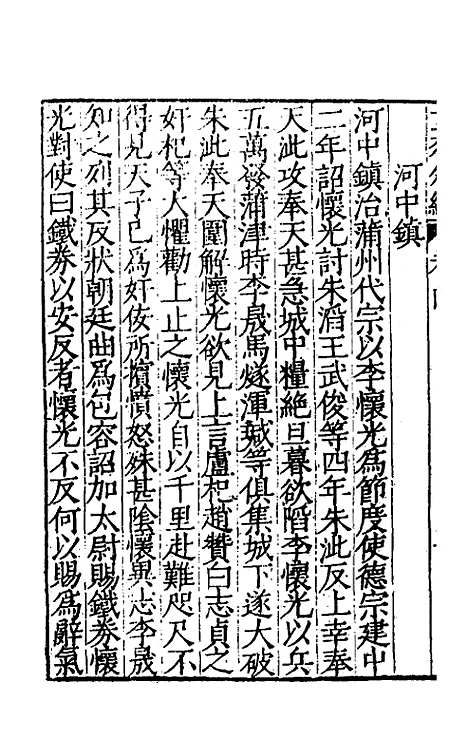 河中鎮
河中鎮治蒲州代宗以李懷光爲節度使德宗建中
二年詔懷光討朱滔王武俊等四年朱泚反上幸奉
天泚攻奉天甚急城中糧絶旦暮欲陷李懷光以兵
五萬發蒲津時李晟馬燧渾瑊等俱集城下遂大破
朱泚奉天圍解懷光欲見上言盧杞趙贊白志貞之
奸杞等人懼勸上止之懷光自以千里赴難咫尺不
得見天子已爲奸佞所擯憤怒殊甚陰懷異志李晟
知之列其反狀朝廷曲爲包容詔加太尉賜鐵券懷
光對使曰鐵券以安反者懷光不反何以賜爲辭氣